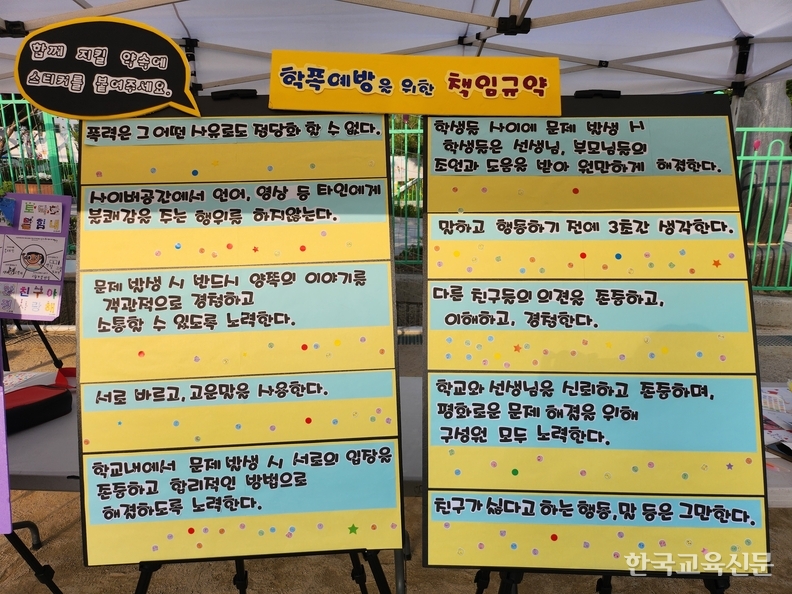 함께 지킬 약속에
스티커를 붙여주세요.
학폭예방을 위한 책임규약
폭력은 그 어떤 사유로도 정당화 할 수 없다.
사이버공간에서 언어, 영상 등 타인에게
불쾌감을 주는 행위를 하지않는다.
문제 발생 시 반드시 양쪽의 이야기를
객관적으로 경청하고
소통할 수 있도록 노력한다.
서로 바르고, 고운말을 사용한다.
학교내에서 문제 발생 시 서로의 입장을
존중하고 합리적인 방법으로
해결하도록 노력한다.
학생들 사이에 문제 발생 시
학생들은 선생님, 부모님들의
조언과 도움을 받아 원만하게 해결한다.
말하고 행동하기 전에 3초간 생각한다.
다른 친구들의 의견을 존중하고,
이해하고, 경청한다.
학교와 선생님을 신뢰하고 존중하며,
평화로운 문제 해결을 위해
구성원 모두 노력한다.
친구가 싫다고 하는 행동, 말 등은 그만한다.
친구야
한국교육신문